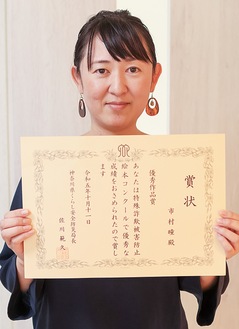 賞状
優秀作品賞
市村瞳殿
あなたは特殊詐欺被害防止
絵本コンクールで優秀な
成績をおさめられたので賞し
ます
令和五年十月十一日
神奈川県くらし安全防災局長
佐川範久